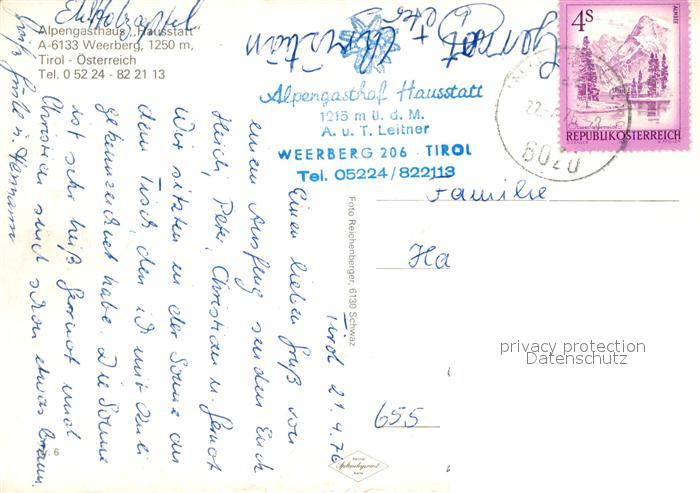 Alpengasthaus „Hausstatt"
A-6133 Weerberg, 1250 m,
Tirol - Österreich
Tel. 0 52 24 - 82 21 13
Christian
Gernot
+ Peter
Alpengasthof Hausstatt
1215 m ü. d. M.
A. u. T. Leitner
WEERBERG 206 - TIROL
Tel. 05224/822113
4S
ALMSEE
REPUBLIK ÖSTERREICH
6020
Tirol 21.4.76
Einen lieben Gruß von
einem Ausflug senden Euch
Heidi, Peter, Christian u. Gernot
Wir sitzen in der Sonne an
dem Tisch, den ich mit Kuli
gekennzeichnet habe. Die Sonne
ist sehr heiß. Gernot und
Christian sind schon etwas braun.
Hermann
Foto Reichenberger, 6130 Schwaz
Familie
Ha
655
privacy protection
Datenschutz